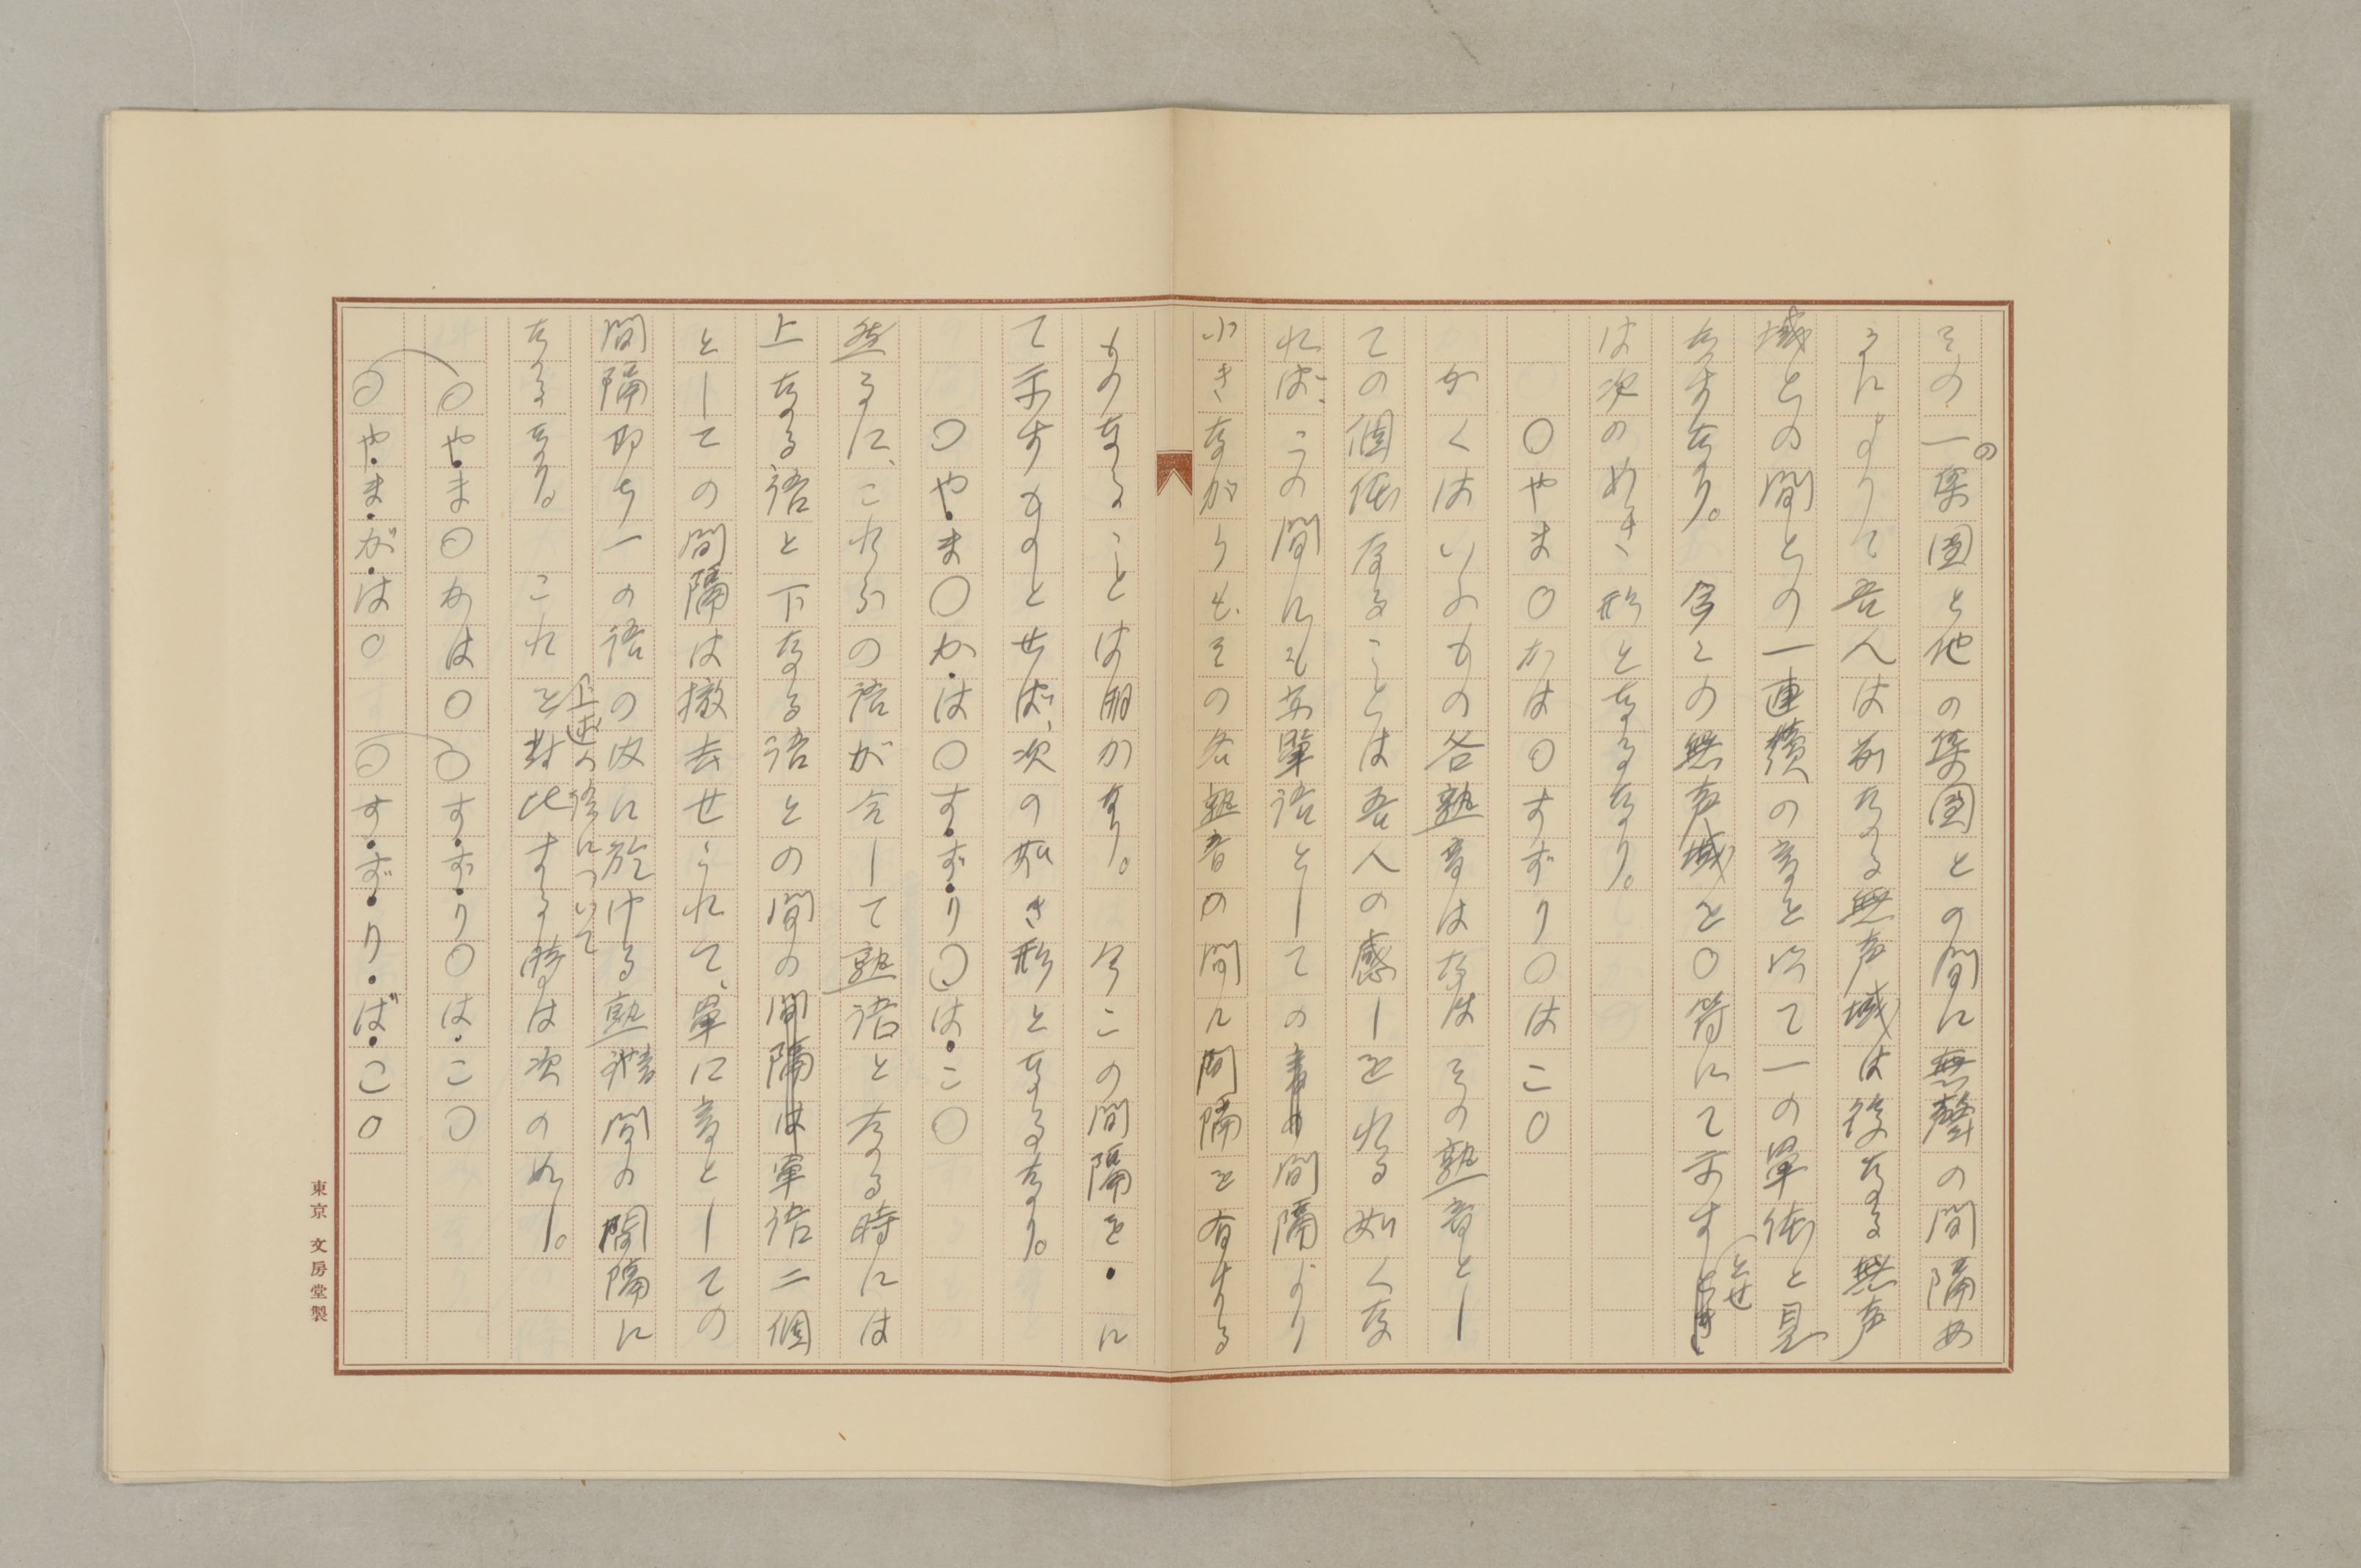 その一の集團と他の集團との間に無聲の間隔あ
るによりて吾人は前なる無声域は後なる無声
域との間との一連續の音を以て一の單位と見
なすなり。今この無声域を〇符にて示すとせ
は次のめき形となるなり。
〇やま〇かは〇すずり〇はこ〇
かくはいふもの各熟音はなほその熟音とし
ての個体なることは吾人の感じをれる如くな
れば、この間にも亦單語としての間隔より
小きながらもその各熟音の間に間隔を有する
ものなることは明かなり。今この間隔を・に
て示すものとせば、次の如き形となるなり。
〇や・ま〇か・は〇す・ず・り〇は・こ〇
然るに、これらの語が合して熟語となる時には
上なる語と下なる語との間の間隔は單語二個
としての間隔は撤去せられて、單に音としての
間隔即ち一の語の内に於ける熟音間の間隔に
上述の語について
なるなり。これを對比する時は次のめし。
〇や・ま〇かは〇〇す・ず・り〇は・こ〇
〇や・ま・が・は〇〇す・ず・り・ば・こ〇
東京 文房堂製